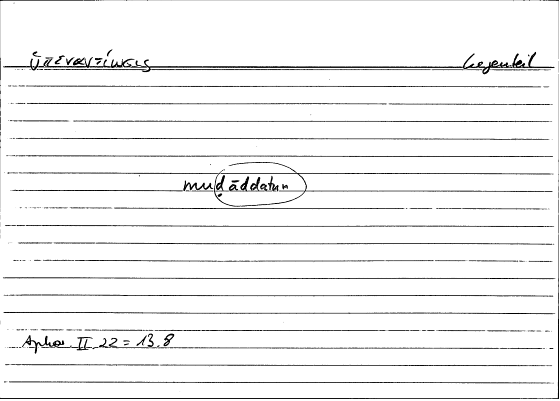 ὑπεναντίωσις Gegenteil
muḍāddatun
Aphor. II 22 = 13.8